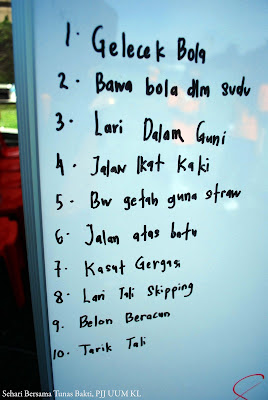 1. Gelecek Bola
2. Bawa bola dlm sudu
3. Lari Dalam Guni
4. Jalan Ikat Kaki
5. Bw getah guna straw
6. Jalan atas batu
7. Kasut Gergasi
8. Lari Tali Skipping
9. Belon Beracun
10. Tarik Tali
Sehari Bersama Tunas Bakti, PJJ UUM KL